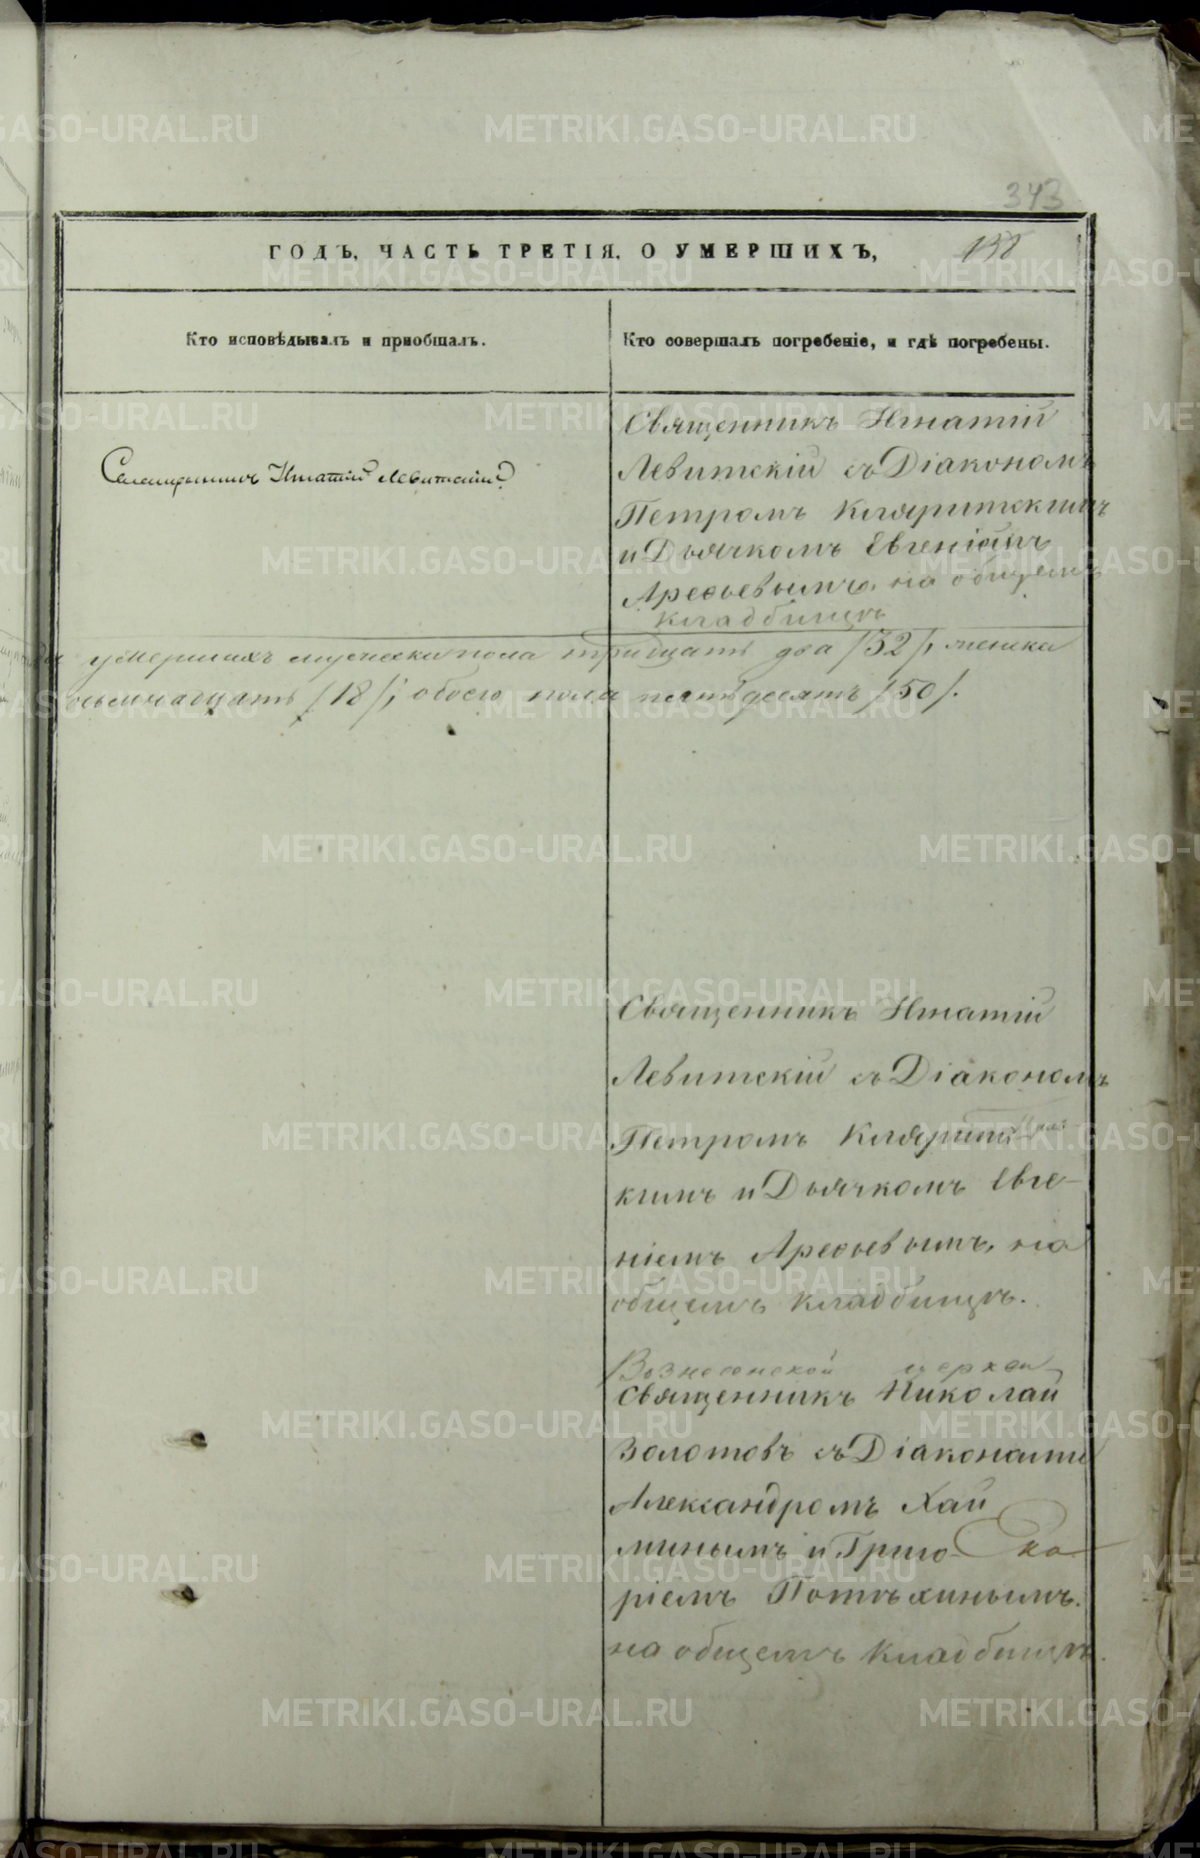 343
ГОДЪ, ЧАСТЬ ТРЕТІЯ. О УМЕРШИХЪ,
Кто исповѣдывалъ и пріобщалъ.
Кто совершалъ погребеніе, и гдѣ погребены.
Священникъ Игнатій Левитскій
Священникъ Игнатій
Левитскій съ Діакономъ
Петромъ
и Дьячкомъ Евгеніемъ
Арефьевымъ, на общемъ
кладбищѣ
умершихъ мужеска пола тридцать два /32/, женска
осьмнадцать /18/; обоего пола пятьдесятъ /50/.
Священникъ Игнатій
Левитскій съ Діакономъ
Петромъ
кимъ и Дьячкомъ Евге-
ніемъ Арефьевымъ, на
общемъ кладбищѣ.
Вознесенской церкви
Священникъ Николай
Золотовъ съ Діаконами
Александромъ Хай
минымъ и Григо-
ріемъ Потѣхинымъ.
на общемъ кладбищѣ.
METRIKI.GASO-URAL.RU